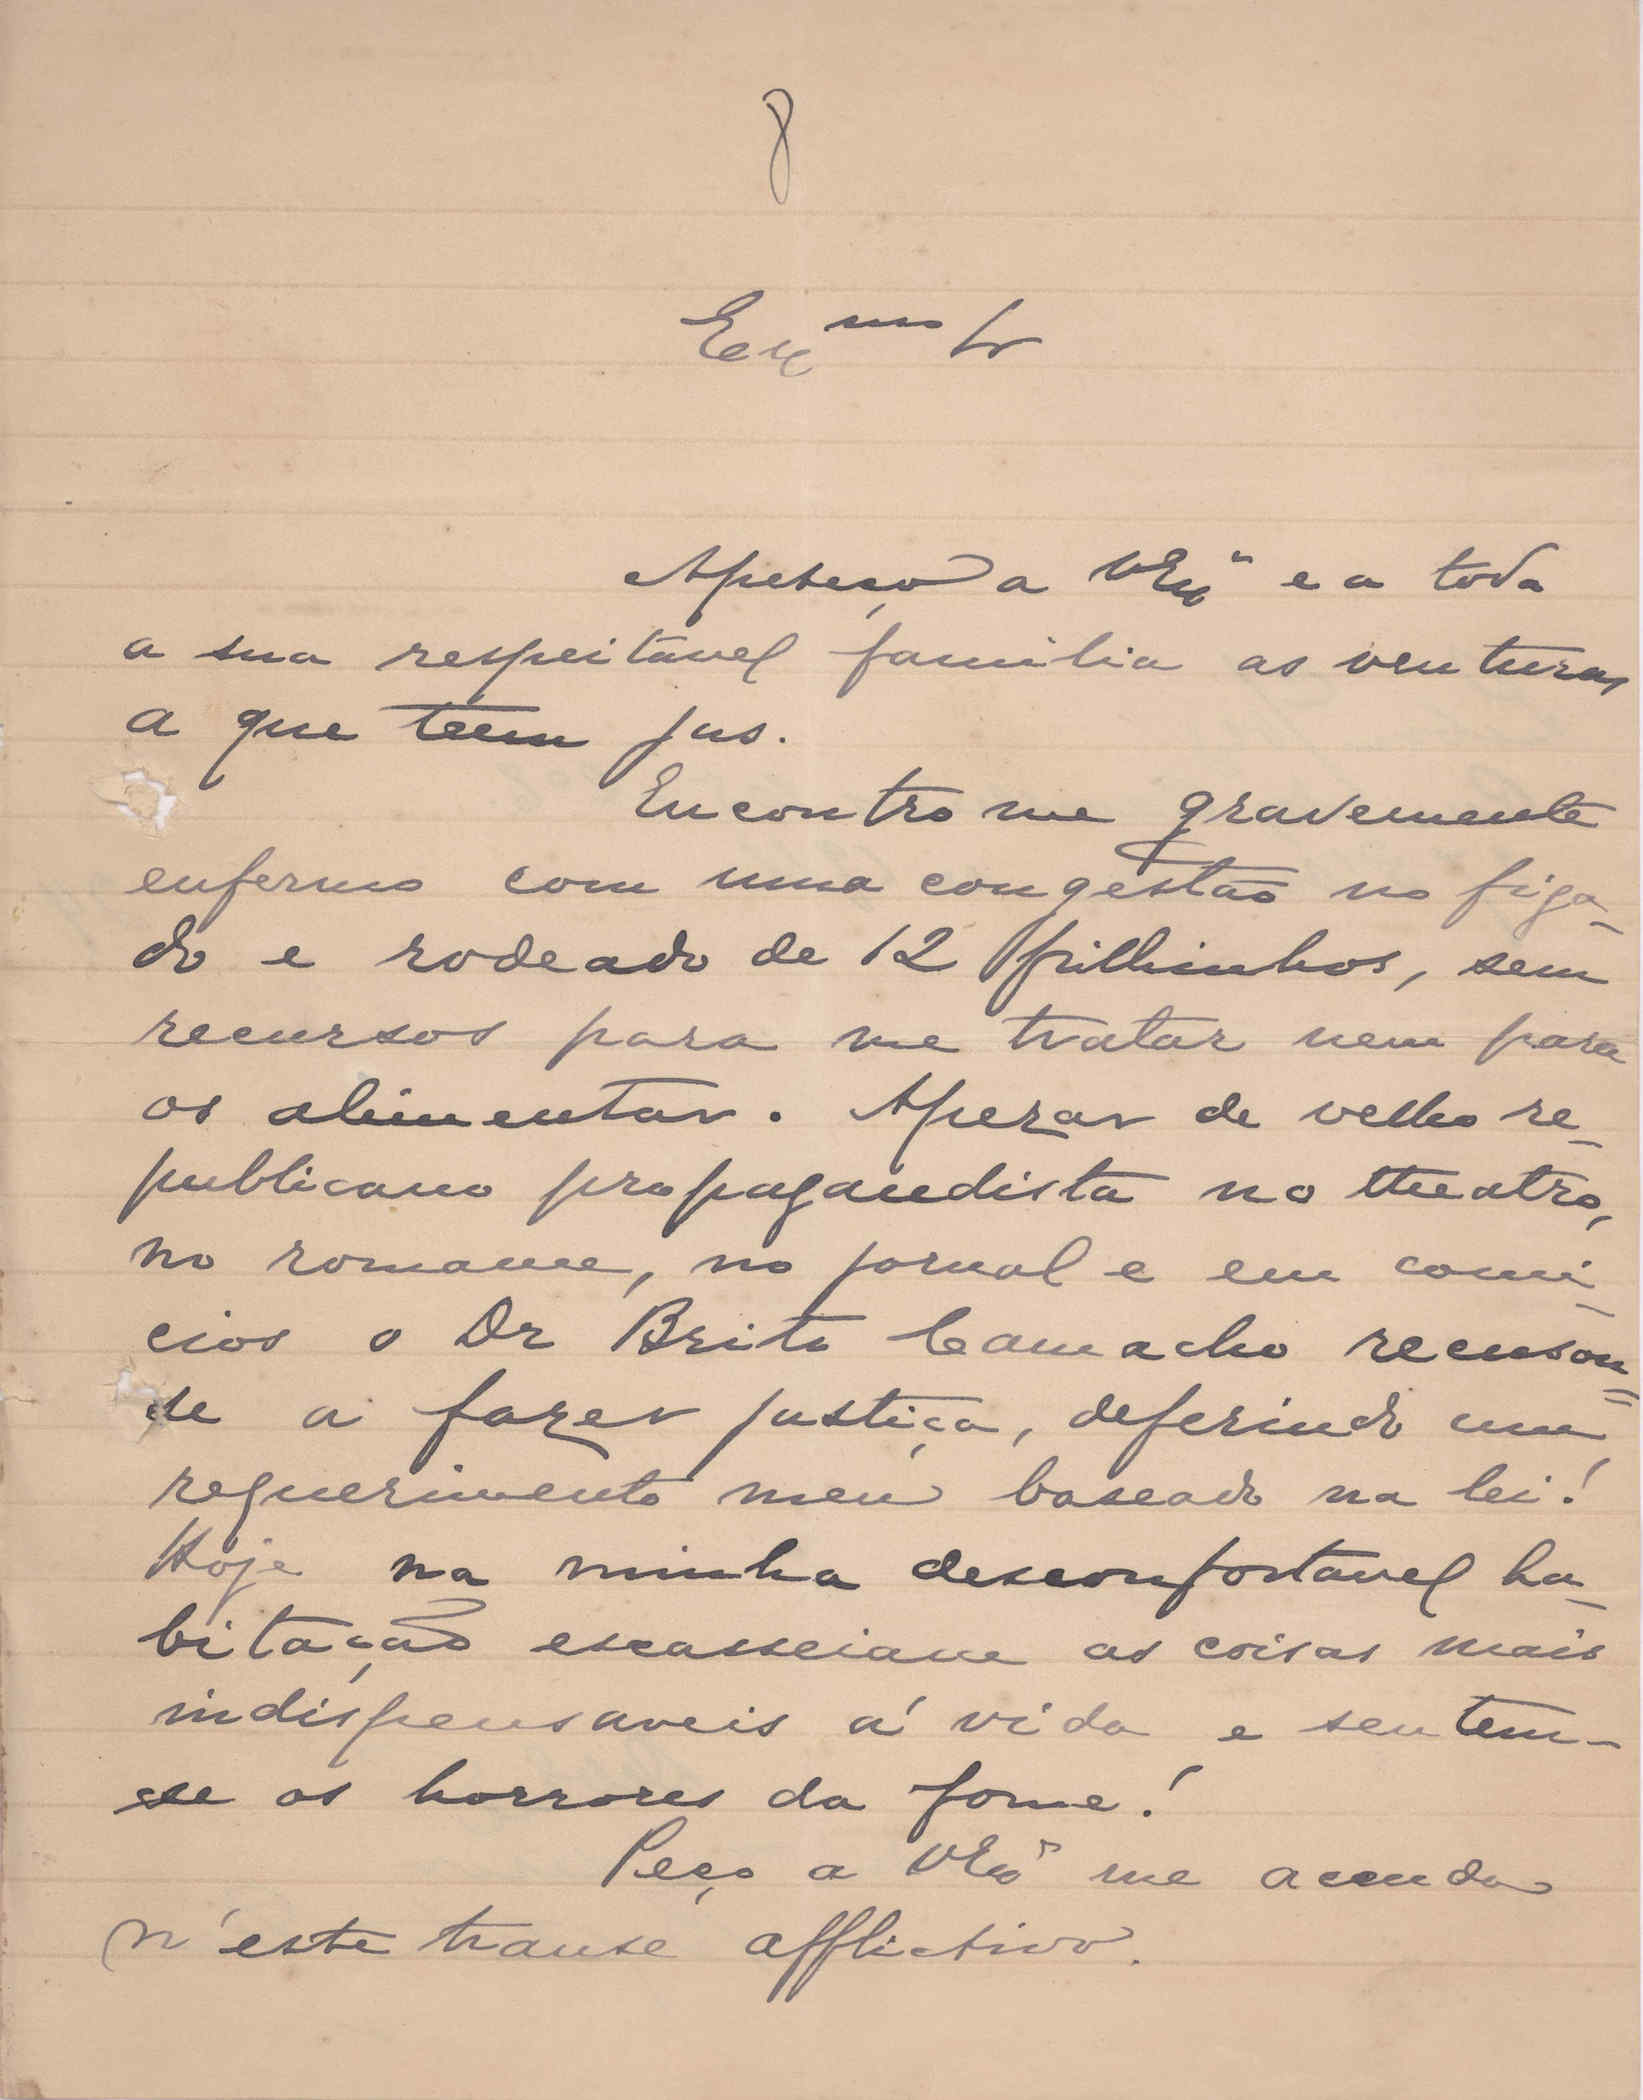 8
Exmo Sr
Apeteço a VExª e a toda
a sua respeitavel familia as venturas
a que teem jus.
Encontro me gravemente
enfermo com uma congestão no figa-
do e rodeado de 12 filhinhos, sem
recursos para me tratar nem para
os alimentar. Apezar de velho re-
publicano propagandista no theatro,
no romance, no jornal e em comi-
cios o Dr Brito Camacho recusou=
se a fazer justiça, deferindo um
requerimento meu baseado na lei!
Hoje na minha desconfortavel ha-
bitação escasseiam as coisas mais
indispensaveis á vida e sentem-
se os horrores da fome!
Peço a VExª me acuda
n'este transe afflictivo.